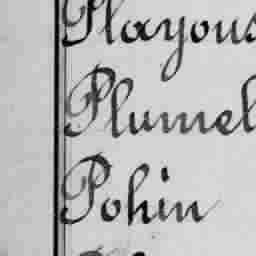 Playous
Plumel
Pohin